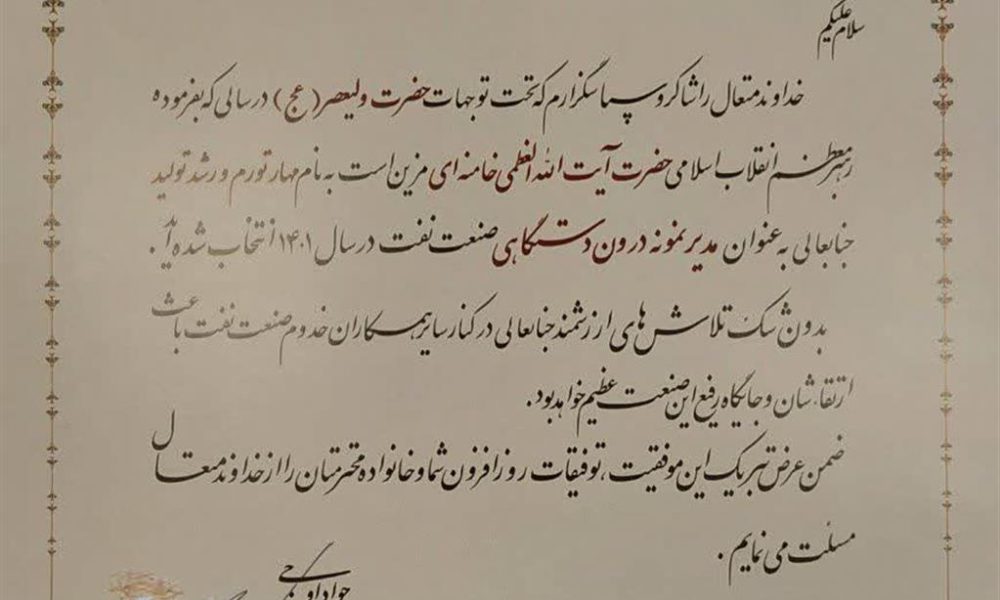 سلام علیکم
خداوند متعال را شاکر و سپاسگزارم که تحت توجهات حضرت ولیعصر (عج) در سالی که بفرموده
رهبر معظم انقلاب اسلامی حضرت آیت الله العظمی خامنه ای مزین است به نام مهار تورم و رشد تولید
جنابعالی به عنوان مدیر نمونه درون دستگاهی صنعت نفت در سال ۱۴۰۱ انتخاب شده اید.
بدون شک تلاش های ارزشمند جنابعالی در کنار سایر همکاران خدوم صنعت نفت باعث
ارتقاء شان و جایگاه رفیع این صنعت عظیم خواهد بود.
ضمن عرض تبریک این موفقیت، توفیقات روز افزون شما و خانواده محترمتان را از خداوند متعال
مسئلت می نمایم.
جواد اوجی